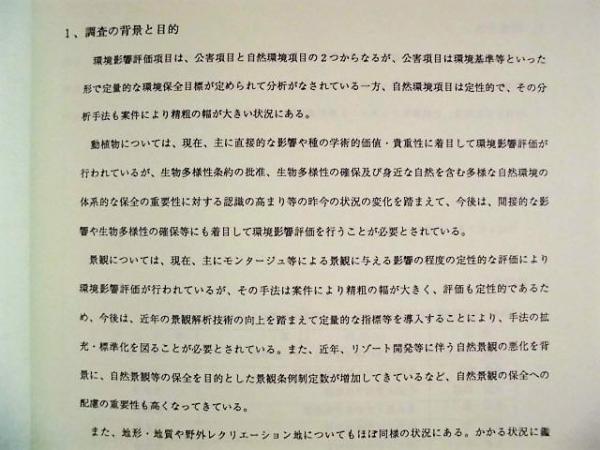 1、調査の背景と目的
環境影響評価項目は、公害項目と自然環境項目の2つからなるが、公害項目は環境基準等といった
形で定量的な環境保全目標が定められて分析がなされている一方、自然環境項目は定性的で、その分
析手法も案件により精粗の幅が大きい状況にある。
動植物については、現在、主に直接的な影響や種の学術的価値・貴重性に着目して環境影響評価が
行われているが、生物多様性条約の批准、生物多様性の確保及び身近な自然を含む多様な自然環境の
体系的な保全の重要性に対する認識の高まり等の昨今の状況の変化を踏まえて、今後は、間接的な影
響や生物多様性の確保等にも着目して環境影響評価を行うことが必要とされている。
景観については、現在、主にモンタージュ等による景観に与える影響の程度の定性的な評価により
環境影響評価が行われているが、その手法は案件により精粗の幅が大きく、評価も定性的であるた
め、今後は、近年の景観解析技術の向上を踏まえて定量的な指標等を導入することにより、手法の拡
充・標準化を図ることが必要とされている。また、近年、リゾート開発等に伴う自然景観の悪化を背
景に、自然景観等の保全を目的とした景観条例制定数が増加してきているなど、自然景観の保全への
配慮の重要性も高くなってきている。
また、地形・地質や野外レクリエーション地についてもほぼ同様の状況にある。かかる状況に鑑